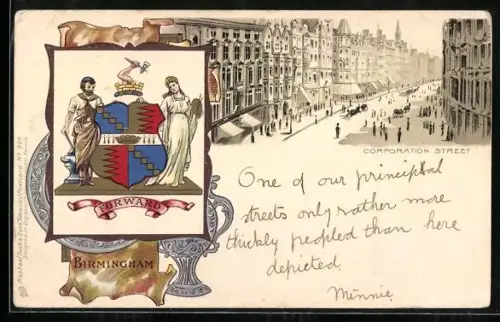 CORPORATION STREET
One of our principal
streets only rather more
thickly peopled than here
depicted.
Minnie.
FORWARD
BIRMINGHAM
Raphael Tuck & Sons